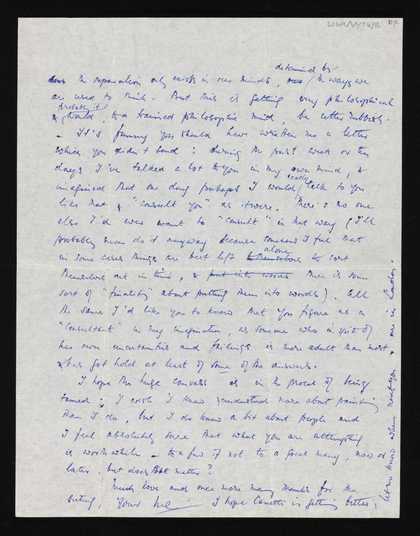 determined by
does the separation only exist in our minds, / the ways we
are used to think. But this is getting very philosophical
probably it
& would, to a trained philosophic mind, be utter rubbish.
- It's funny you should have written me a letter
which you didn't send: during the past week or ten
days I've talked a lot to you in my own mind, &
really
imagined that one day perhaps I would / talk to you
like that & "consult you" as it were. There is no one
else I'd ever want to "consult" in that way (I'll
probably never do it anyway because somehow I feel that
alone
in some cases things are best left to sort
themselves out in time, & put into words there is some
sort of "finality" about putting them into words). All
the same I'd like you to know that you figure as a
"consultant" in my imagination, as someone who in spite of
her own uncertainties and failings is more adult than most,
& has got hold at least of some of the answers.
I hope the huge canvas is in the process of being
tamed; I wish I knew & understood more about painting
than I do, but I do know a bit about people and
I feel absolutely sure that what you are attempting
is worth while - to a few if not to a great many, now or
later: but does that matter?
Much love and once more many thanks for the
outing, Yours I hope Canetti is getting better;
let me know when is in London.